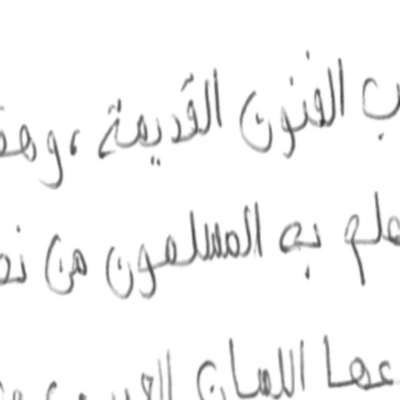 ب الفنون القديمة ، وهذ
علم به المسلمون من نا
عها اللسان العربي